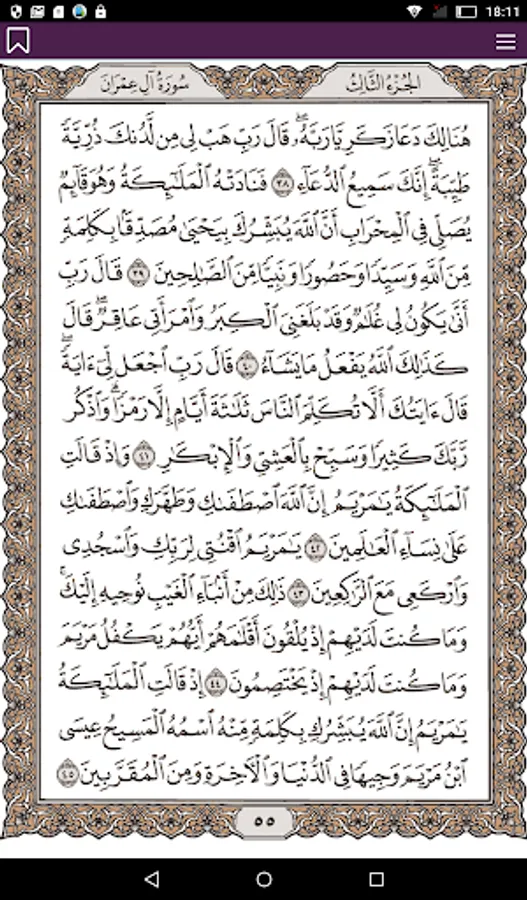 18:11
سُورَةُ آلِ عِمْرَانَ
الجُزْءُ الثَّالِثُ
هُنَالِكَ دَعَا زَكَرِيَّا رَبَّهُۥۖ قَالَ رَبِّ هَبْ لِي مِن لَّدُنكَ ذُرِّيَّةً
طَيِّبَةًۖ إِنَّكَ سَمِيعُ ٱلدُّعَآءِ ٣٨ فَنَادَتْهُ ٱلْمَلَٰٓئِكَةُ وَهُوَ قَآئِمٌ
يُصَلِّي فِي ٱلْمِحْرَابِ أَنَّ ٱللَّهَ يُبَشِّرُكَ بِيَحْيَىٰ مُصَدِّقًۢا بِكَلِمَةٍ
مِّنَ ٱللَّهِ وَسَيِّدًا وَحَصُورًا وَنَبِيًّا مِّنَ ٱلصَّٰلِحِينَ ٣٩ قَالَ رَبِّ
أَنَّىٰ يَكُونُ لِي غُلَٰمٌ وَقَدْ بَلَغَنِيَ ٱلْكِبَرُ وَٱمْرَأَتِي عَاقِرٌۖ قَالَ
كَذَٰلِكَ ٱللَّهُ يَفْعَلُ مَا يَشَآءُ ٤٠ قَالَ رَبِّ ٱجْعَل لِّيٓ ءَايَةًۖ
قَالَ ءَايَتُكَ أَلَّا تُكَلِّمَ ٱلنَّاسَ ثَلَٰثَةَ أَيَّامٍ إِلَّا رَمْزًاۗ وَٱذْكُر
رَّبَّكَ كَثِيرًا وَسَبِّحْ بِٱلْعَشِيِّ وَٱلْإِبْكَٰرِ ٤١ وَإِذْ قَالَتِ
ٱلْمَلَٰٓئِكَةُ يَٰمَرْيَمُ إِنَّ ٱللَّهَ ٱصْطَفَىٰكِ وَطَهَّرَكِ وَٱصْطَفَىٰكِ
عَلَىٰ نِسَآءِ ٱلْعَٰلَمِينَ ٤٢ يَٰمَرْيَمُ ٱقْنُتِي لِرَبِّكِ وَٱسْجُدِي
وَٱرْكَعِي مَعَ ٱلرَّٰكِعِينَ ٤٣ ذَٰلِكَ مِنْ أَنۢبَآءِ ٱلْغَيْبِ نُوحِيهِ إِلَيْكَۚ
وَمَا كُنتَ لَدَيْهِمْ إِذْ يُلْقُونَ أَقْلَٰمَهُمْ أَيُّهُمْ يَكْفُلُ مَرْيَمَ
وَمَا كُنتَ لَدَيْهِمْ إِذْ يَخْتَصِمُونَ ٤٤ إِذْ قَالَتِ ٱلْمَلَٰٓئِكَةُ
يَٰمَرْيَمُ إِنَّ ٱللَّهَ يُبَشِّرُكِ بِكَلِمَةٍ مِّنْهُ ٱسْمُهُ ٱلْمَسِيحُ عِيسَى
ٱبْنُ مَرْيَمَ وَجِيهًا فِي ٱلدُّنْيَا وَٱلْءَاخِرَةِ وَمِنَ ٱلْمُقَرَّبِينَ ٤٥
٥٥